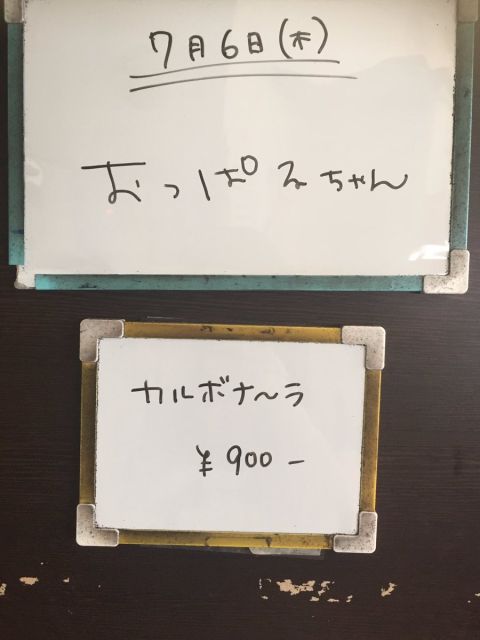 7月6日(木)
おっぱるちゃん
カルボナ〜ラ
¥900−